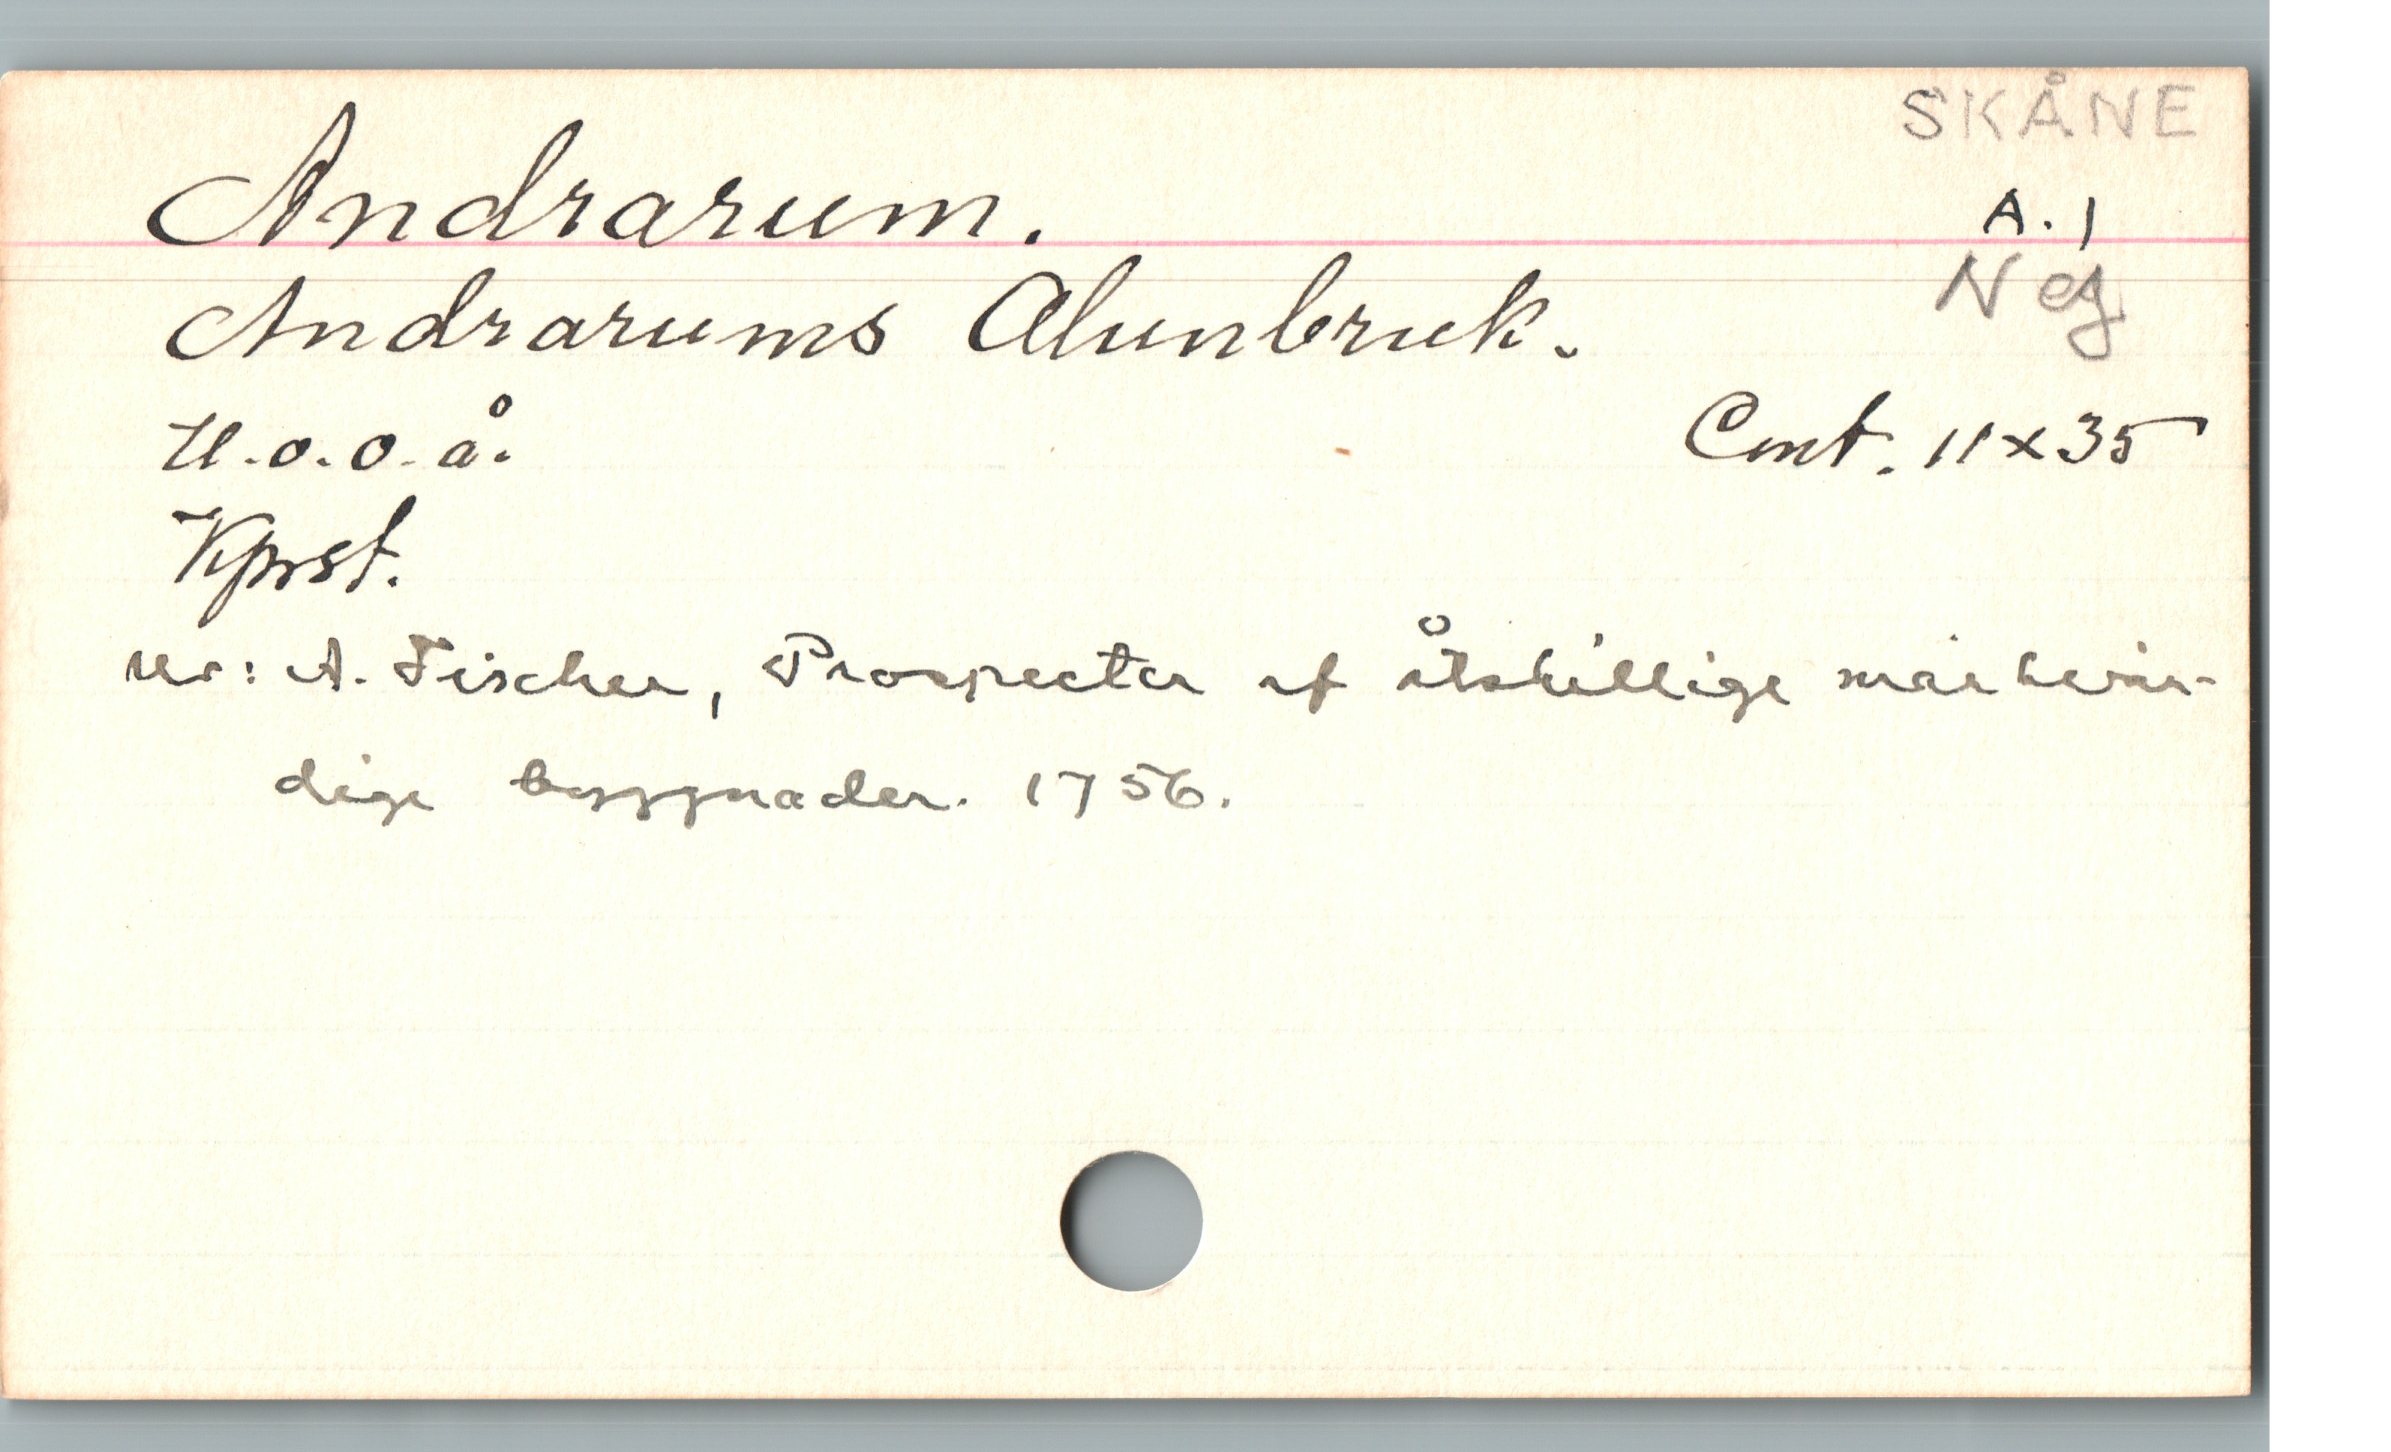 SKÅNE
Andrarum.
A. 1
Andrarums Alunbruk.
Neg
U.o.o.å.
Cent. 11x35
Kprst.
Ur: A. Fischer, Prospecter af åtskillige märkvär-
dige byggnader. 1756.